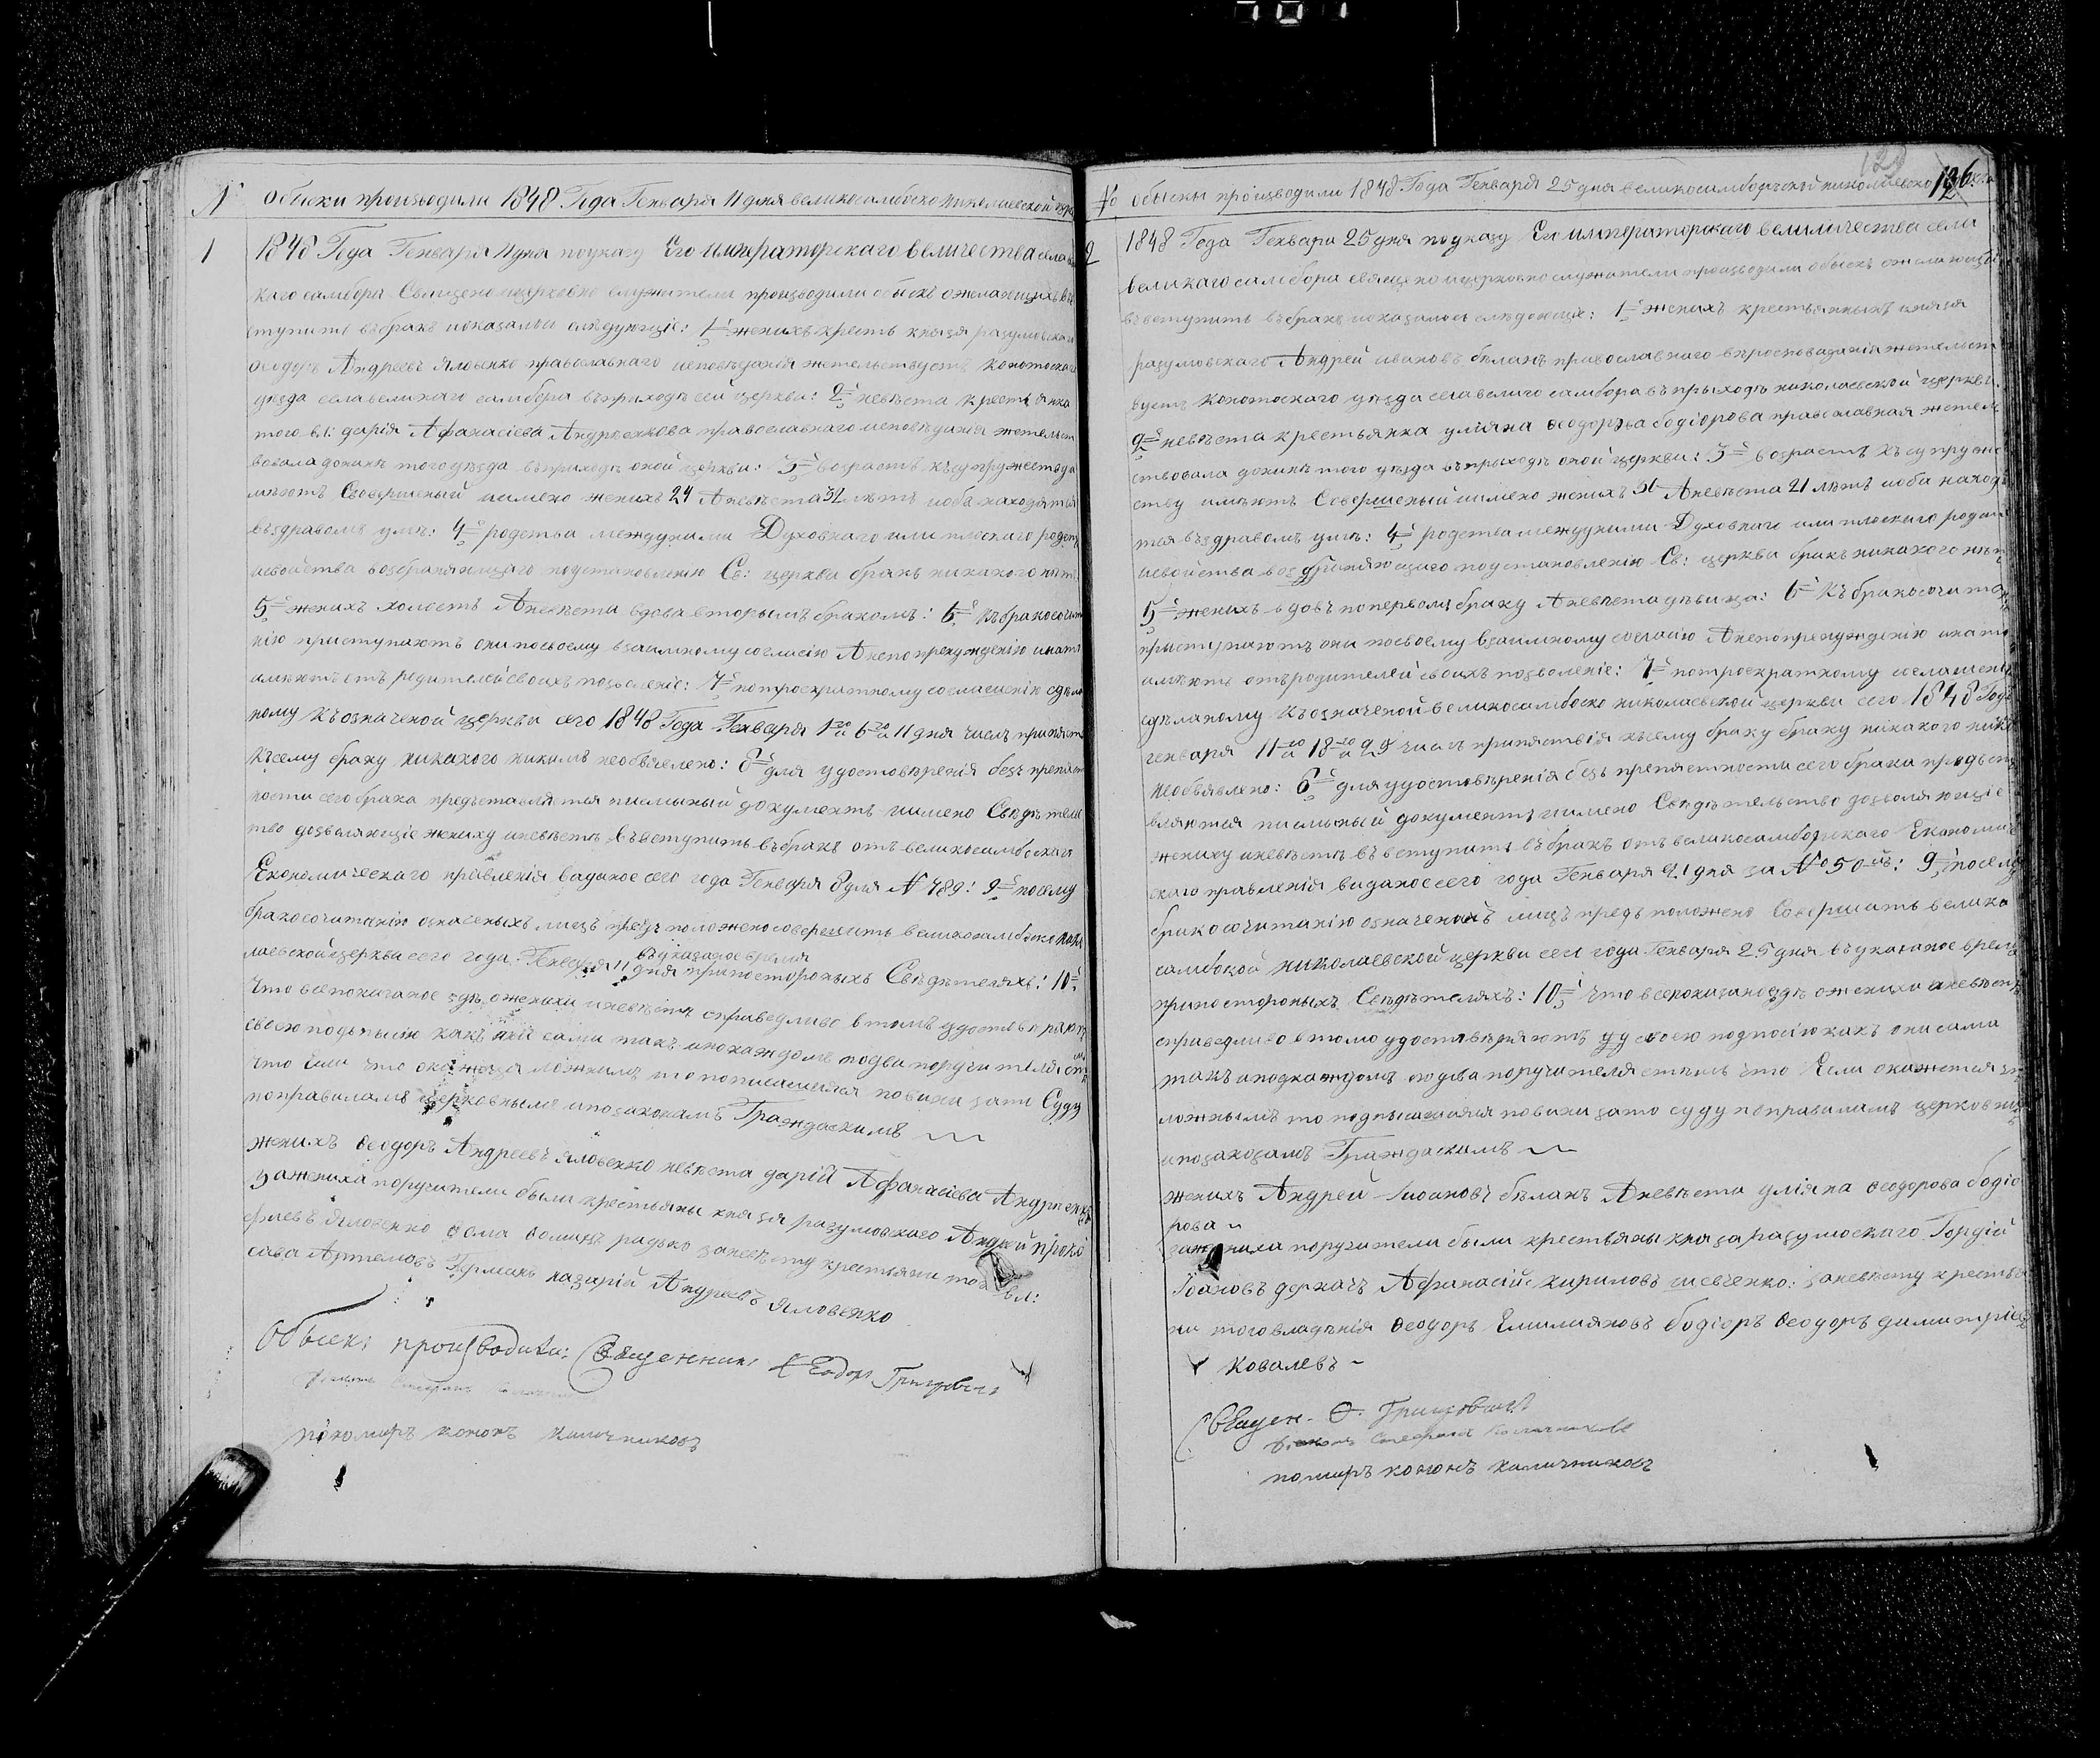 № обыски произьодили 1848. Года Генваря 11 дня великосамбоско николаевской
1
1848 Года Генваря 11 дня поуказу Его императорскаго величества села
каго самбора Священоицерковно служители произьодили обыскъ ожелающихъ въ
ступить въбракъ иоказалося слѣдующіе: 1^е женихъ крестъ князя разумовскаго
Ѳеодоръ Андреевъ яловенко православнаго исповѣданія жетельствуетъ конотоскаго
уѣзда селавеликаго самбора въприходѣ сей церкви: 2^е невѣста крестьянка
того вл: дарія Афанасіева Андрѣенкова православнаго исповѣданія жетельст
вовала донинѣ того уѣзда въприходѣ оной церкви: 3^е возрастъ къ супружеству и
мѣютъ Совершеный имено женихъ 24 Аневѣста 32 лѣтъ иоба находятся
въздравомъ умѣ: 4^е родства междуними Духовнаго или плоскаго родст
исвойства возбраняющаго поустановленію Св: церкви бракъ никакого нѣтъ
5^е женихъ холостъ Аневѣста вдова вторымъ бракомъ: 6^е Къбракосочита
нію приступаютъ они посвоему взаимному согласію Анепо пренужденію инато
имѣютъ отъ родителей своихъ позволеніе: 7^е потроекратному оглашенію сдѣла
ному къозначеной церкви сего 1848 Года Генваря 1^го 6^го и 11 дня числъ припятст
къ сему браку никакого никимъ необявлено: 8^е для удостовѣренія безъ препятст
ности сегобрака предъставляется письмыный документъ имено Свѣдѣтельс
тво дозволяющіе жениху иневѣстѣ въвступить въбракъ отъ великосамбоскаго
Економическаго правленія виданое сего года Генваря 8 дня № 489: 9^е посему
бракосочитанію означеныхъ лицъ предъположено совершить вельикосамбоско нико
лаевской церкви сего года Генваря 11 дня въуказаное время припостороныхъ Свѣдѣтеляхъ: 10^е
Что всепоказаное здѣ ожениху иневѣстѣ справедливо втомъ удостовѣряютъ
своею подъписью какъ они сами такъ ипокаждомъ подва поручителя стѣмъ
что Если что окажеца ложнимъ то пописавшияся повини зато Суду
поправиламъ церковнымъ ипозаконамъ Граждаскимъ
женихъ Ѳеодоръ Андреевъ яловенко невѣста дарій Афанасіева Андрѣенко
зажениха поручители были крестьяны князя разумовскаго Андрей прокó
фиевъ яловенко Ѳома Ѳоминъ радько заневѣсту крестьяни того вл:
сава Артемовъ Германъ назарій Андреевъ яловенко
Обыскъ производили: Священникъ Ѳеодоръ Григоровичъ
пономаръ кононъ каличниковъ
№ обыскы произьодили 1848 Года Генваря 25 дня великосамборьской николаевско
126.
2
1848 Года Генвари 25 дня поуказу Его императорскаго велиличества села
великаго самбора священо ицерковно служители произьодили обыскъ ожелающихъ
въвступить въбракъ иоказалося слѣдоющіе: 1^е женихъ крестьянинъ князя
разумовскаго Андрей ивановъ бѣланъ православнаго вѣроисповѣданія жетельст
вуетъ конотоскаго уѣзда селавелиго самбора въприходѣ николаевской церкви.
2^е невѣста крестьянка уліяна Ѳеодорова бодіорова православная жетель
ствовала донинѣ того уѣзда въприходѣ оной церкви: 3^е возрастъ къ супруже
ству имѣютъ Совершеный имено женихъ 31 Аневѣста 21 лѣтъ иоба находя
тся въздравомъ умѣ: 4^е родства междуними Духовнаго или плоскаго родст
исвойства возбраняющаго поустановленію Св: церкви бракъ никакого нѣтъ
5^е женихъ вдовъ поперьвому браку Аневѣста дѣвица: 6^е Къ бракосочитан
приступаютъ они посвоему взаимному согласію Анепопренужденію инато
имѣютъ отъродителей своихъ позволеніе: 7^е потроекратному оглашенію
сдѣланому къозначеной великосамбоско николаевской церкви сего 1848 Года
генваря 11^го 18^го и 25 числъ припятствія къ сему браку браку никакого никимъ
необъявлено: 8^е для удостовѣренія безъ препятстности сего брака предъста
вляются письмыный документъ имено Свѣдѣтельство дозволяющіе
жениху иневѣстѣ въвступить въбракъ отъ великосамборскаго Економиче
скаго правленія виданое сего года Генваря 21 дня за № 50^мъ: 9^е посему
бракосочитанію означеныхъ лицъ предъположено Совершить велико
самбской николаевской церкви сего года Генваря 25 дня въуказаное время
припостороныхъ Свѣдѣтеляхъ: 10^е что всепоказаноездѣ ожениха иневѣстѣ
справедливо втомо удостовѣряютъ своею подписью какъ они сами
такъ иподкаждомъ подва поручителя стѣмъ что Если окажется что
ложнымъ то подписавшияся повини зато суду поправиламъ церковнымъ
ипозаконамъ Граждаскимъ
женихъ Андрей Ивановъ бѣланъ Аневѣста уліяна Ѳеодорова бодіо
рова
зажениха поручители были крестьяны князя разумоскаго Гордій
Іоановъ деркачъ Афанасій кириловъ шевченко: заневѣсту крестья
ни тоговладѣнія Ѳеодоръ Емилияновъ бодіоръ Ѳеодоръ димитріевъ
Ковалевъ
Священ. Ѳ. Григоровичъ
диаконъ Стефанъ каличниковъ
помаръ кононъ каличниковъ